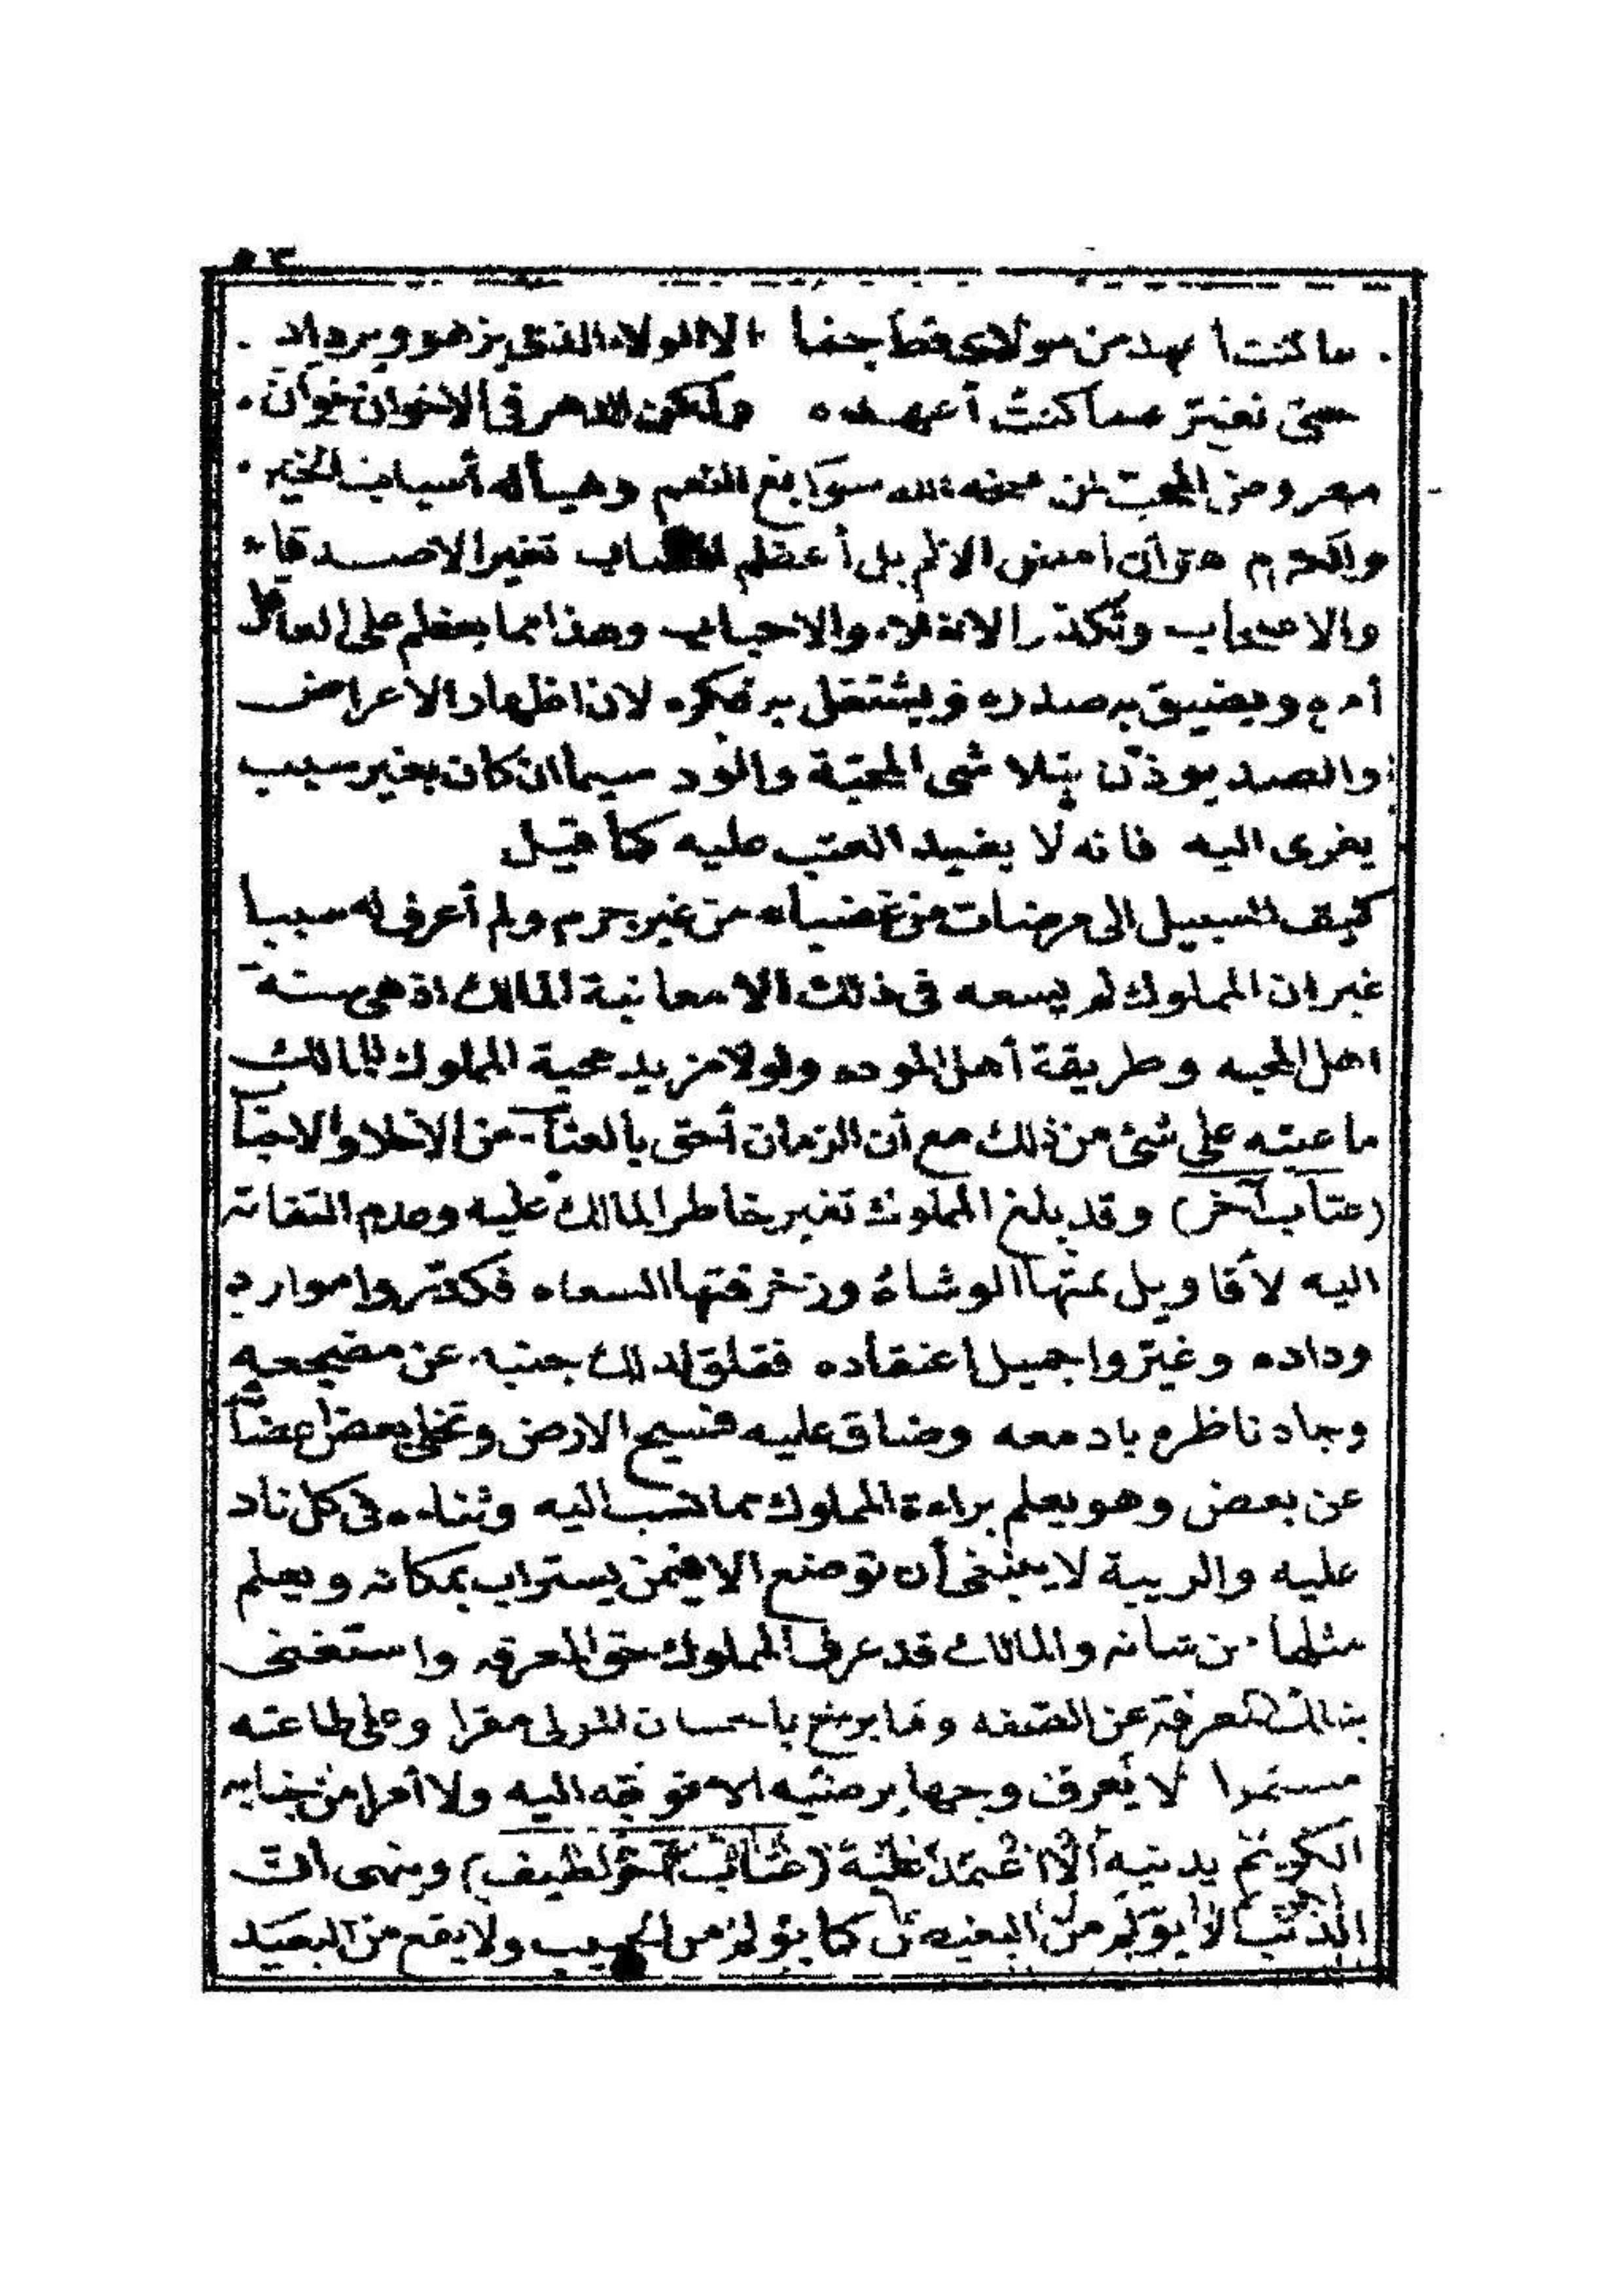 ٥٣
ما كنت أعهد من مولاى قط جفا الا الولاء الذى يزهو ويزداد
حتى تغير عما كنت أعهده ولكن الدهر فى الاخوان خوان
معروض المحب لمن منحه الله سوابغ النعم وهيأ له أسباب الخير
والكرم هو أن امض الالم بل أعظم تغير الاصدقاء
والاصحاب وتكدر الاخلاء والاحباب وهذا مما يعظم على العاقل
أمره ويضيق به صدره ويشتغل به فكره لان اظهار الاعراض
والصد يوذن بتلاشى المحبة والود سيما ان كان بغير سبب
يعزى اليه فانه لا يفيد العتب عليه كما قيل
كيف السبيل الى مرضات من غضبا من غير جرم ولم أعرف له سببا
غير ان المملوك لم يسعه فى ذلك الا معاتبة المالك اذ هى سنة
اهل المحبه وطريقة أهل الموده ولولا مزيد محبة المملوك للمالك
ما عتبه على شئ من ذلك مع أن الزمان أحق بالعتاب من الاخلا والاحبا
(عتاب آخر) وقد بلغ المملوك تغير خاطر المالك عليه وعدم التفاته
اليه لأقاويل نمتها الوشاة وزخرفتها السعاه فكدروا موارد
وداده وغيروا جميل اعتقاده فقلق لذلك جنبه عن مضجعه
وجاد ناظره بادمعه وضاق عليه فسيح الارض وتخلى بعض اعضائه
عن بعض وهو يعلم براءة المملوك مما نسب اليه وثناءه فى كل ناد
عليه والريبة لا ينبغى أن توضع الا فيمن يستراب بمكانه ويعلم
مثلها من شانه والمالك قد عرف المملوك حق المعرفه واستغنى
بذلك المعرفة عن الصفه وما برح باحسان المولى مقرا وعلى طاعته
مستمرا لا يعرف وجها يرضيه الا توجه اليه ولا أمرا من جنابه
الكريم يدنيه الا اعتمد عليه (عتاب آخر لطيف) وينهى أن
الذنب لا يؤلم من البغيض كما يؤلم من الحبيب ولا يقع من البعيد